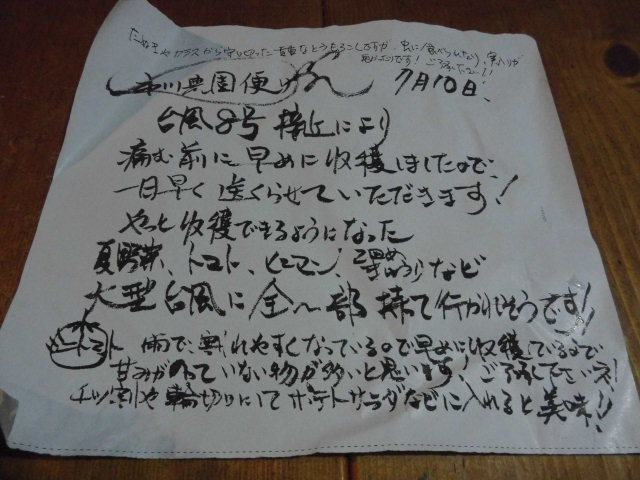 たぬきやカラスから守り切った貴重なとうもろこしですが、虫に食べられたり、実入りが
です！ご了承下さーい！
川農園便り 7月10日、
台風8号接近により
痛む前に早めに収穫しましたので、
一日早く送くらせていただきます！
やっと収穫できるようになった
夏野菜、トマト、ピーマン、きゅうりなど
大型台風に全〜部持って行かれそうです！
ミニトマト 雨で、割れやすくなっているので早めに収穫しているので
甘みがのっていない物が多いと思います！ご了承して下さいネ！
四ツ割や輪切りにしてポテトサラダなどに入れると美味！！